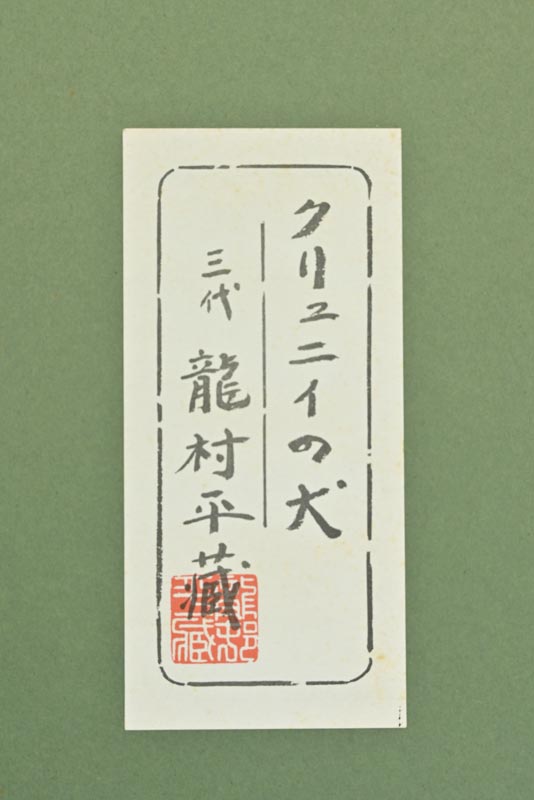 クリュニイの犬
三代 龍村平藏